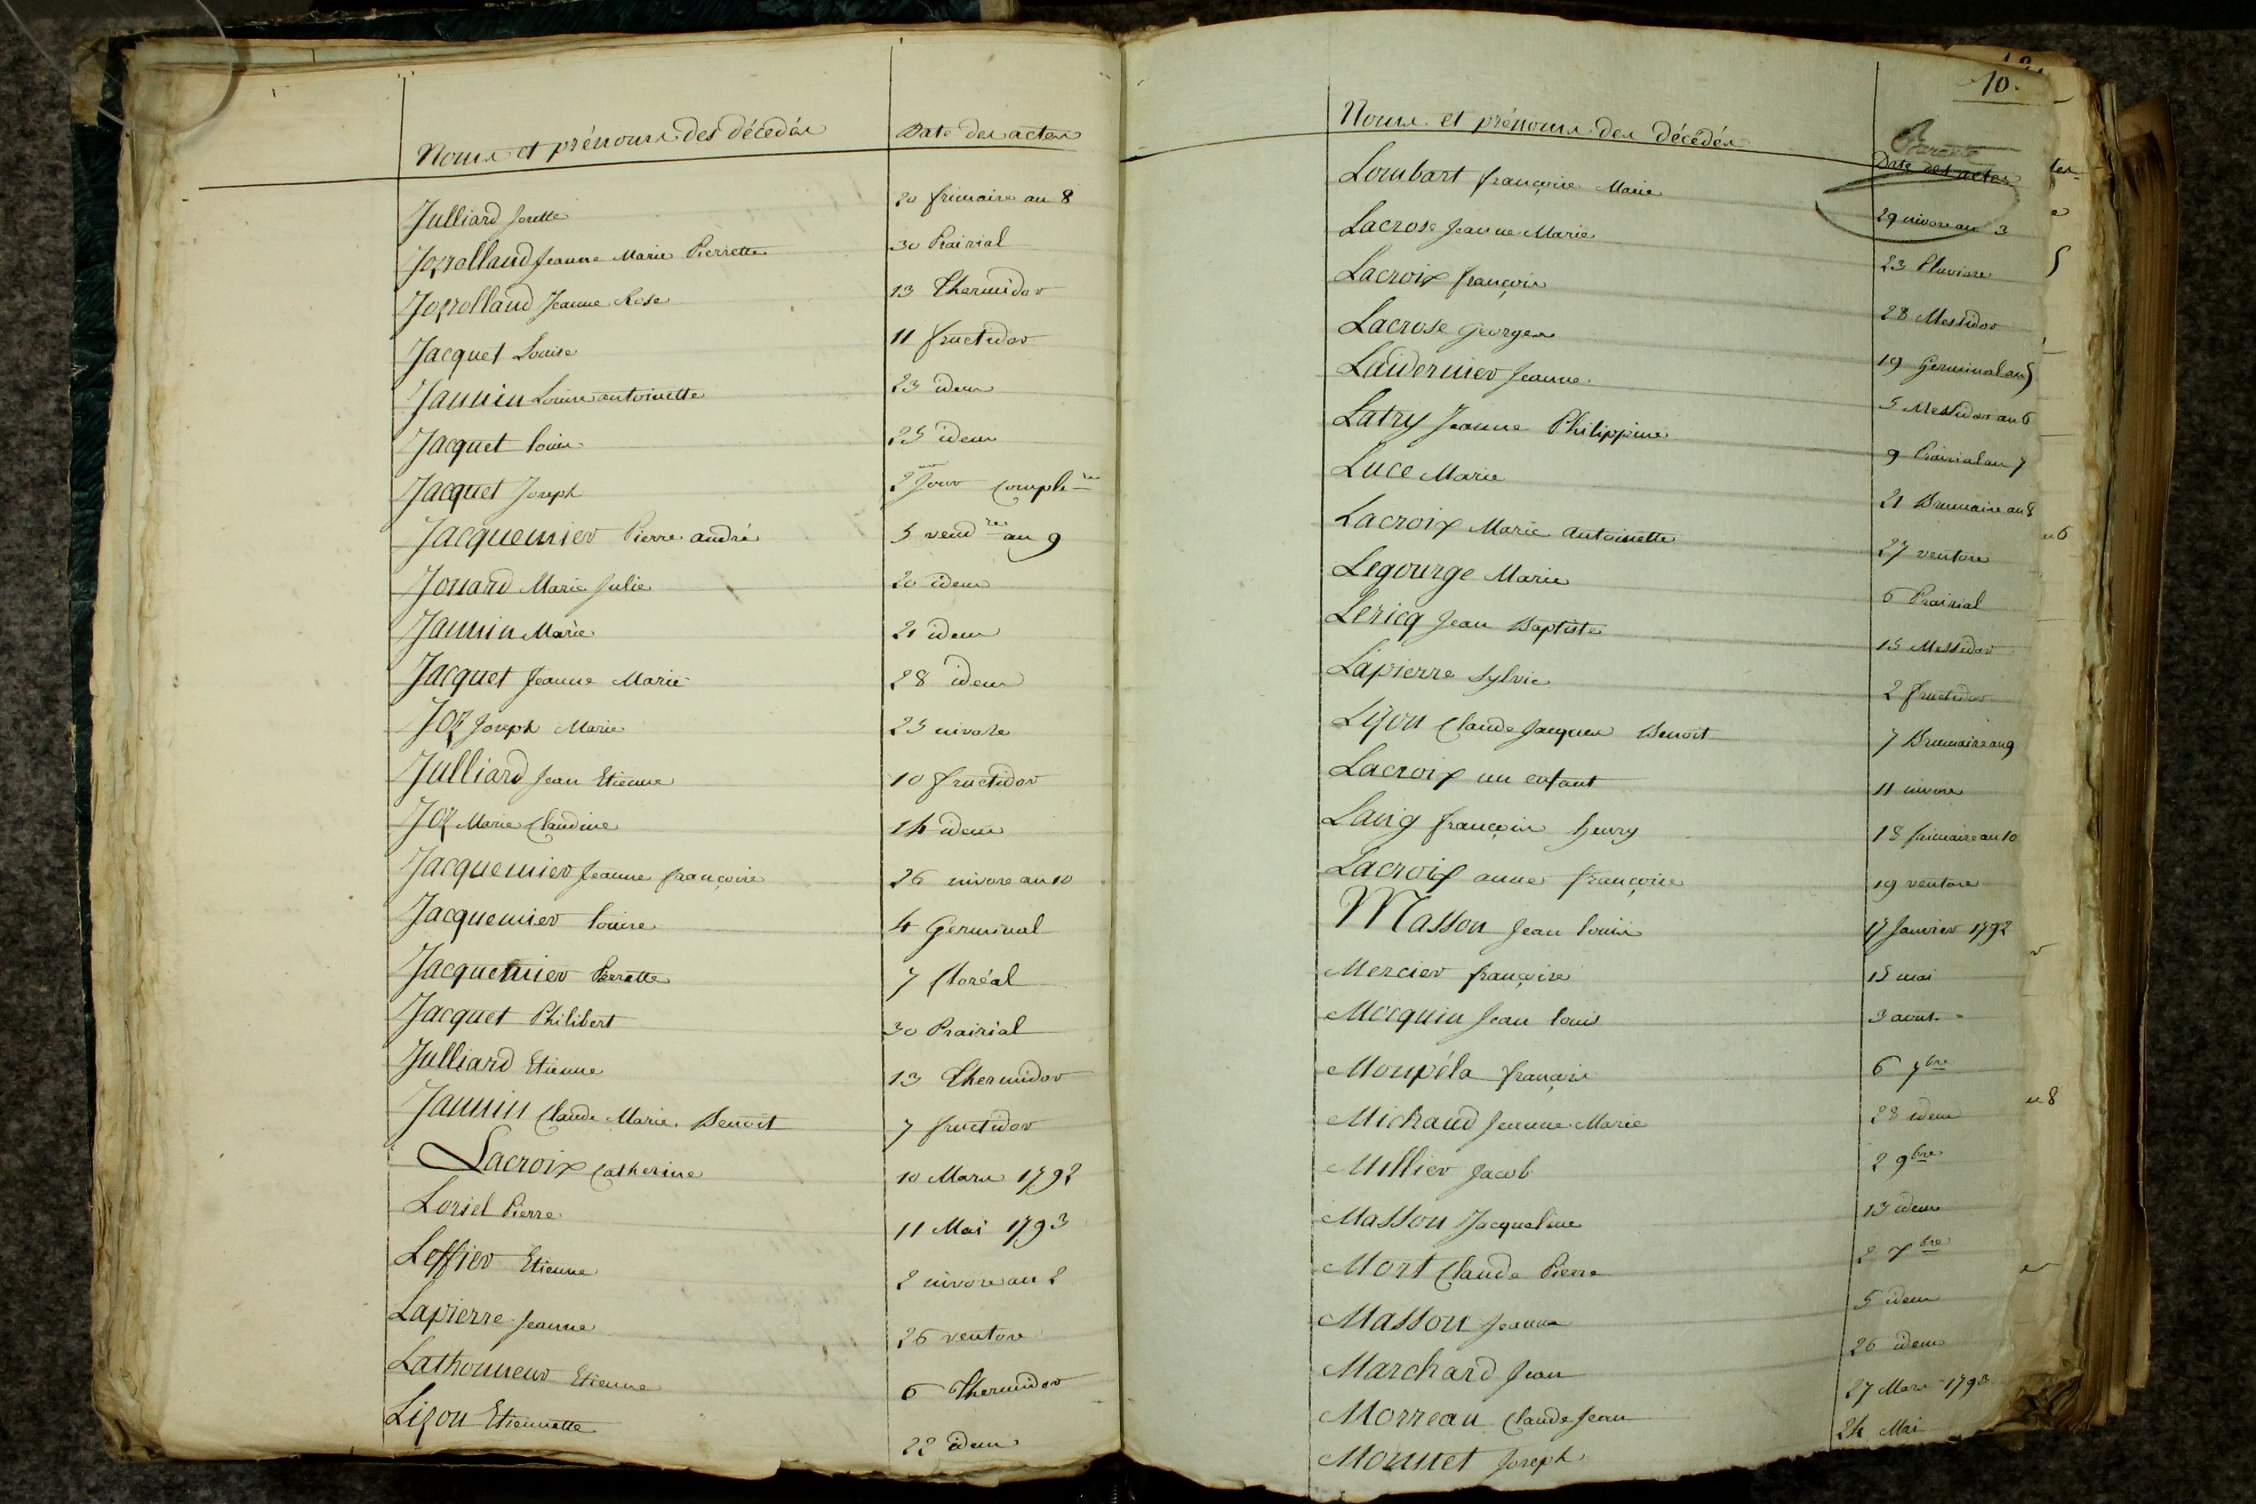 Noms et prénoms des décedés Date des actes
Julliard Josette 20 frimaire an 8
Jozrolland Jeanne Marie Pierrette 30 Prairial
Jozrolland Jeanne Rose 13 Thermidor
Jacquet Louise 11 fructidor
Jannin Louise antoinette 23 idem
Jacquet Louis 25 idem
Jacquet Joseph 2 Jour Complre
Jacquemier Pierre andré 5 vendre an 9
Jouard Marie Julie 20 idem
Jannin Marie 21 idem
Jacquet Jeanne Marie 28 idem
Joz Joseph Marie 25 nivose
Julliard Jean Etienne 10 fructidor
Joz Marie Claudine 14 idem
Jacquemier Jeanne françoise 26 nivose an 10
Jacquemier Louise 4 Germinal
Jacquemier Pierrette 7 floréal
Jacquet Philibert 30 Prairial
Julliard Etienne 13 Thermidor
Jannin Claude Marie Benoit 7 fructidor
Lacroix Catherine 10 Mars 1792
Loriel Pierre 11 Mai 1793
Leffier Etienne 2 nivose an 2
Lapierre Jeanne 26 ventose
Lathonneur Etienne 6 Thermidor
Lizon Etiennette 22 idem
10.
Noms et prénoms des décédés Date des actes
Lombart françoise Marie 29 nivose an 3
Lacrose Jeanne Marie 23 Pluviose
Lacroix françois 28 Messidor
Lacrose Georges 19 Germinal an 5
Laidernier Jeanne 5 Messidor an 6
Latry Jeanne Philippine 9 Prairial an 7
Luce Marie 21 Brumaire an 8
Lacroix Marie antoinette 27 ventose
Legourge Marie 6 Prairial
Lericq Jean Baptiste 15 Messidor
Lapierre Sylvie 2 fructidor
Lizon Claude Jacques Benoit 7 Brumaire an 9
Lacroix un enfant 11 nivose
Lang françois henry 18 frimaire an 10
Lacroix anne françoise 19 ventose
Masson Jean Louis 17 Janvier 1792
Mercier françoise 15 mai
Mocquin Jean Louis 3 aout
Moupéla françois 6 7bre
Michaud Jeanne Marie 28 idem
Millier Jacob 2 9bre
Masson Jacqueline 13 idem
Mort Claude Pierre 2 Xbre
Masson Jeanne 5 idem
Marchard Jean 26 idem
Morreau Claude Jean 27 Mars 1793
Monnet Joseph 24 Mai